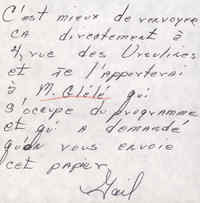 C'est mieux de renvoyre
ça directement à
4, rue des Ursulines
et je l'apporterai
à M. Clélé qui
s'occupe du programme
et qui a demandé
qu'on vous envoie
cet papier
Gail